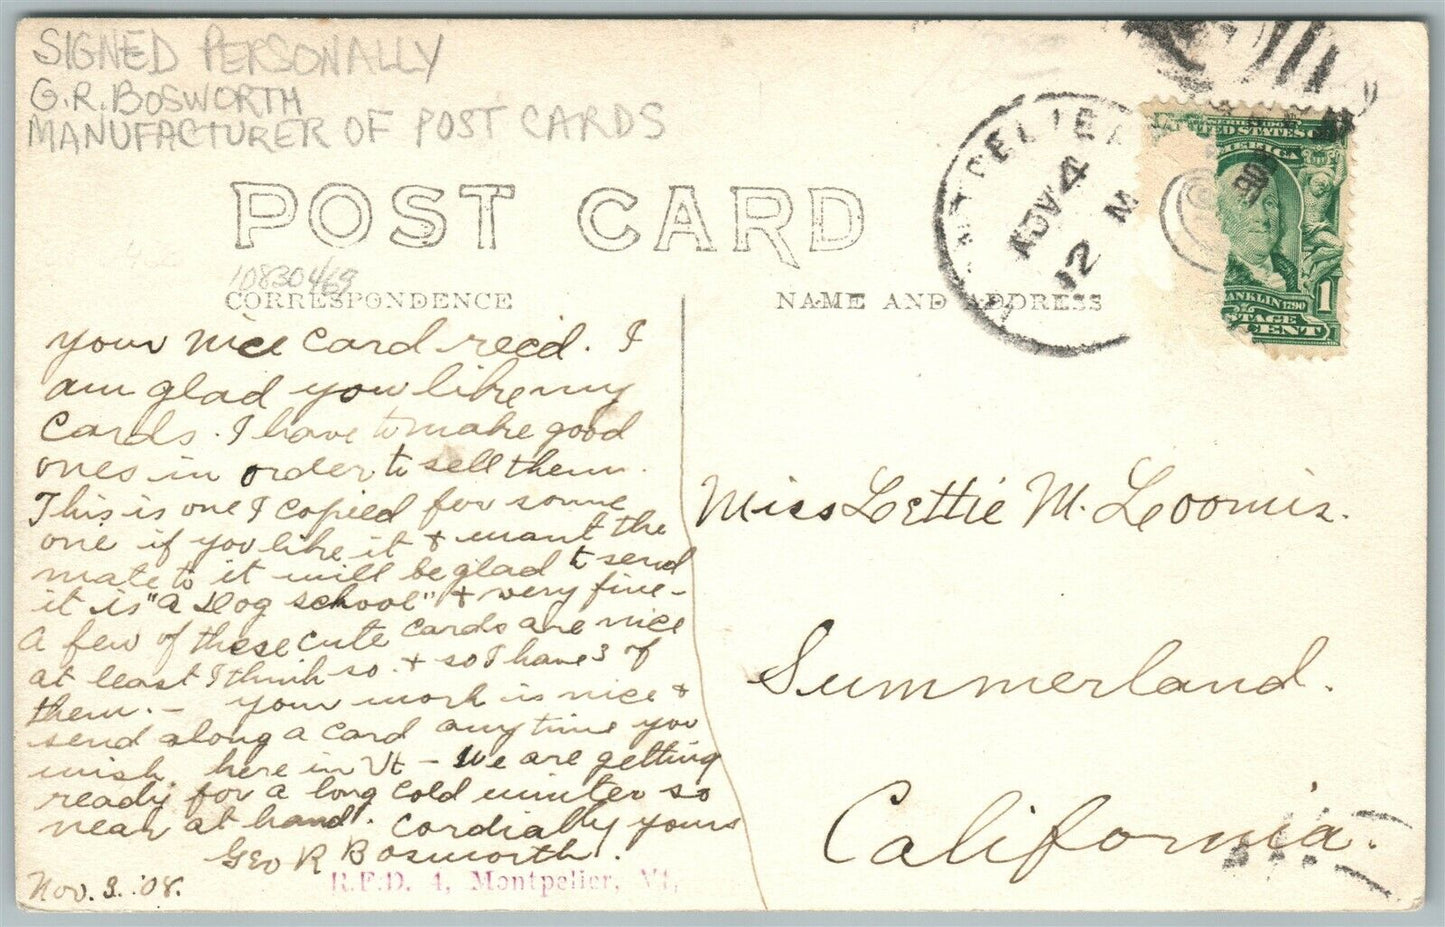 SIGNED PERSONALLY
G.R. BOSWORTH
MANUFACTURER OF POST CARDS
POST CARD
10830469
CORRESPONDENCE
NAME AND ADDRESS
NOV 4
12 M
UNITED STATES OF
AMERICA
FRANKLIN 1790
POSTAGE
1 CENT
your nice card rec'd. I
am glad you like my
cards. I have to make good
ones in order to sell them.
This is one I copied for some
one if you like it & want the
mate to it will be glad to send
it is "a Dog school" & very fine-
a few of these cute cards are nice
at least I think so. & so I have 3 of
them. - your work is nice &
send along a card any time you
wish. here in Vt - We are getting
ready for a long cold winter so
near at hand. Cordially yours
Geo R Bosworth.
Nov. 3. '08.
R.F.D. 4, Montpelier, Vt.
Miss Lettie M. Loomis.
Summerland.
California.